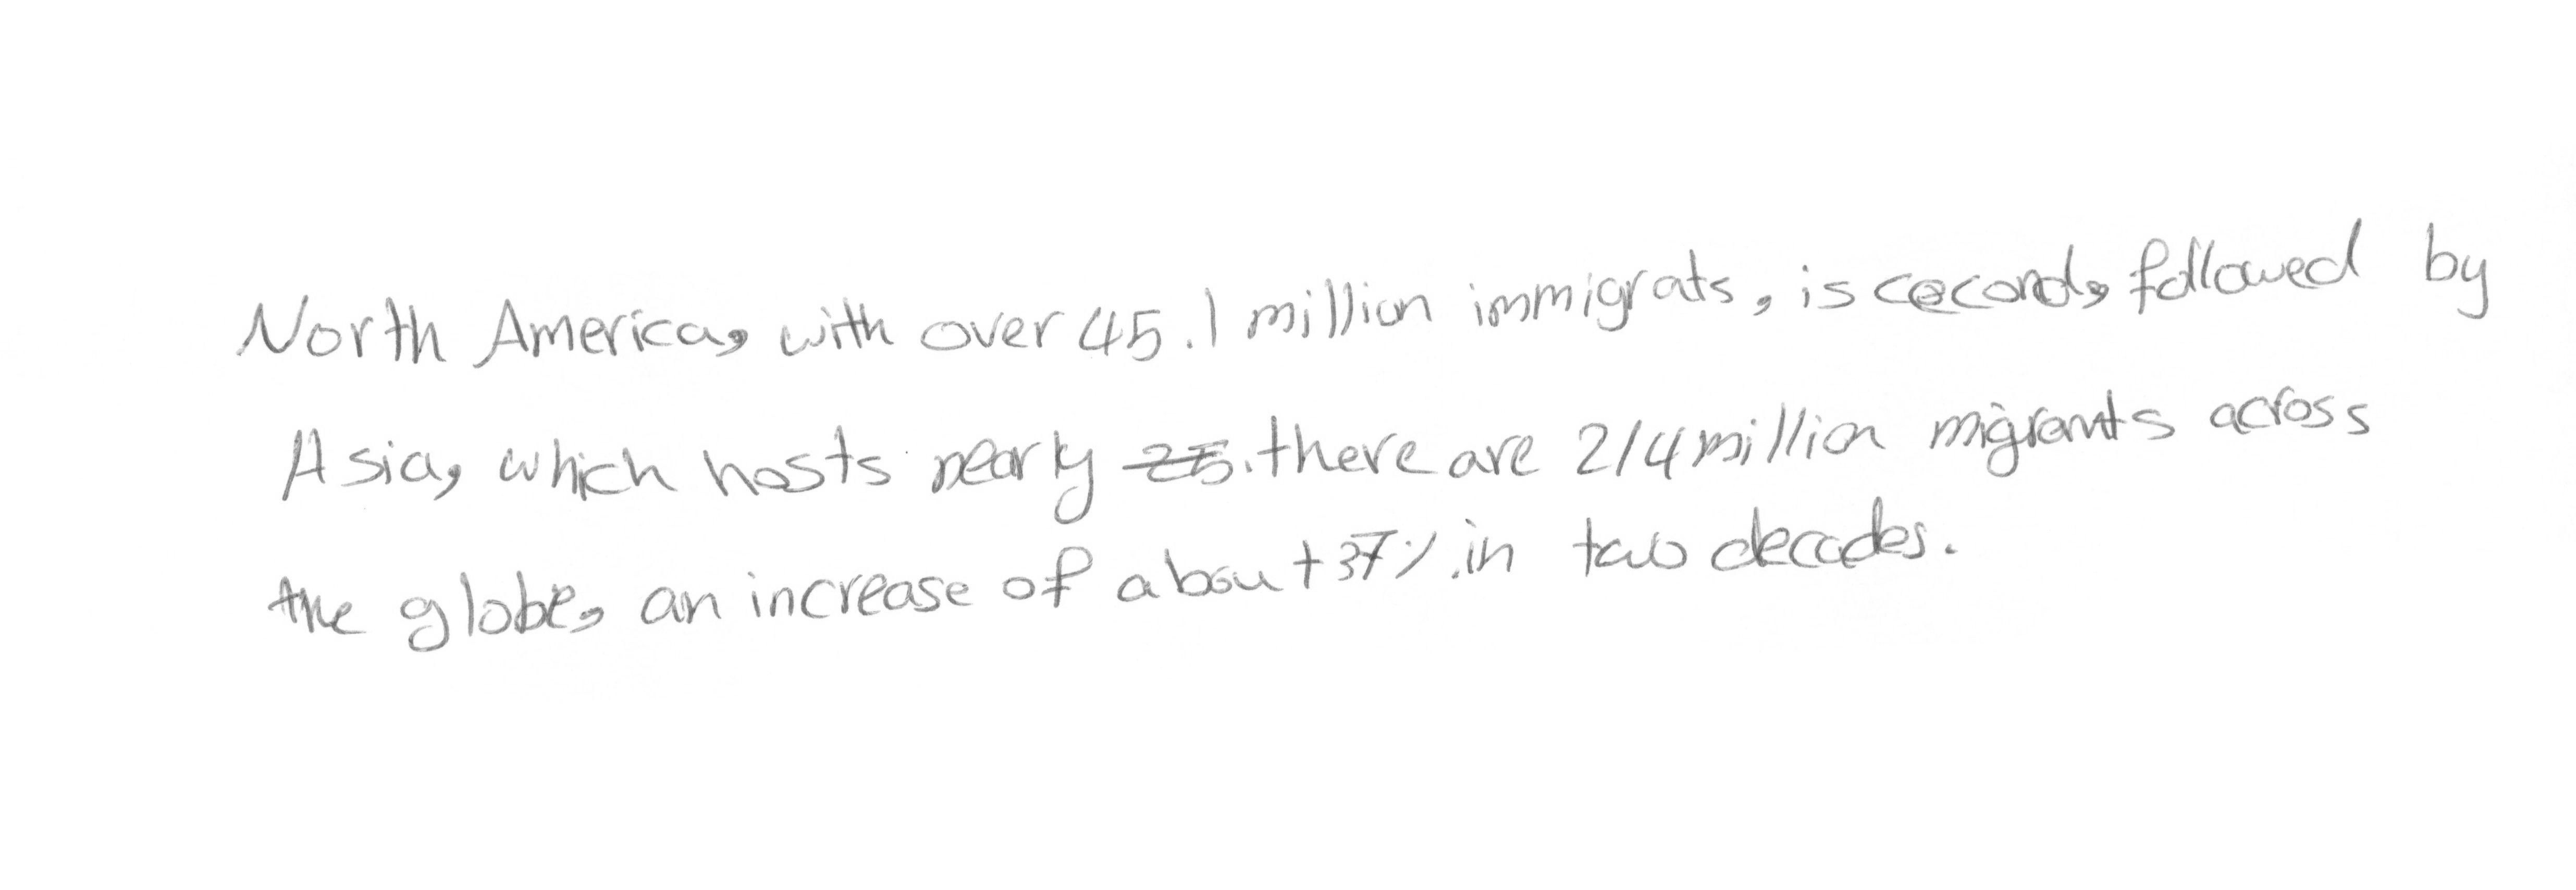 North America, with over 45.1 million immigrats, is ceconds followed by
Asia, which hosts nearly 25. there are 214 million migrants across
the globe, an increase of about 37% in two decades.